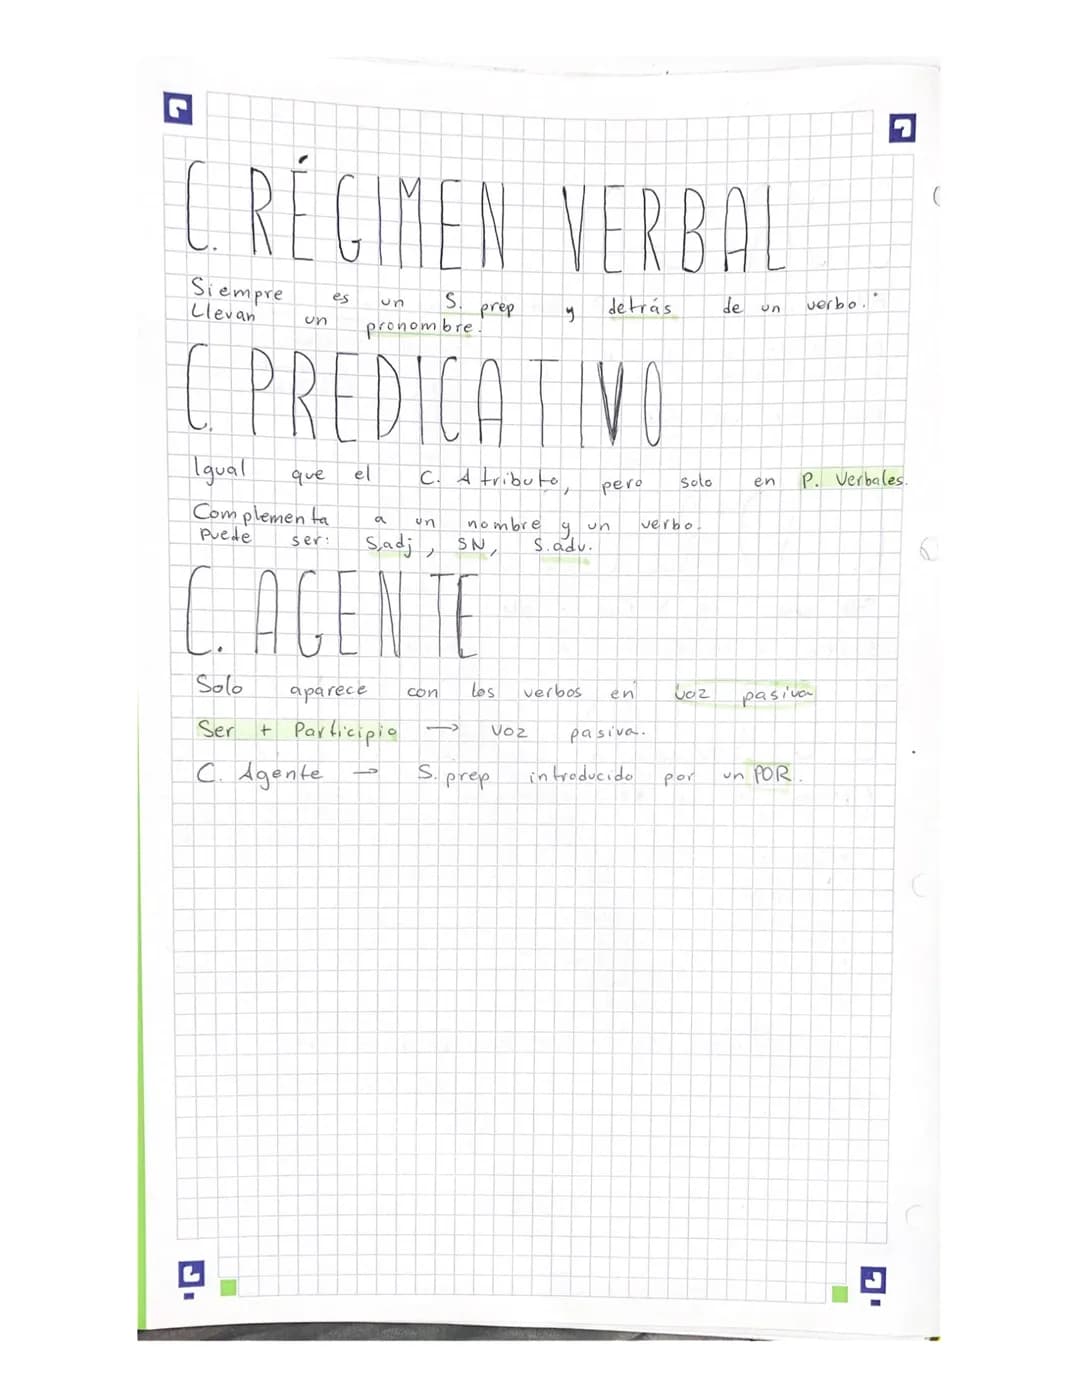 C. RÉGIMEN VERBAL
Siempre es un S. prep y detrás de un verbo.
Llevan un pronombre.
C. PREDICATIVO
Igual que el C. Atributo, pero solo en P. Verbales.
Complementa a un nombre y un verbo.
Puede ser: S,adj, SN, S.adv.
C. AGENTE
Solo aparece con los verbos en voz pasiva
Ser + Participio → voz pasiva.
C. Agente → S. prep introducido por un POR.